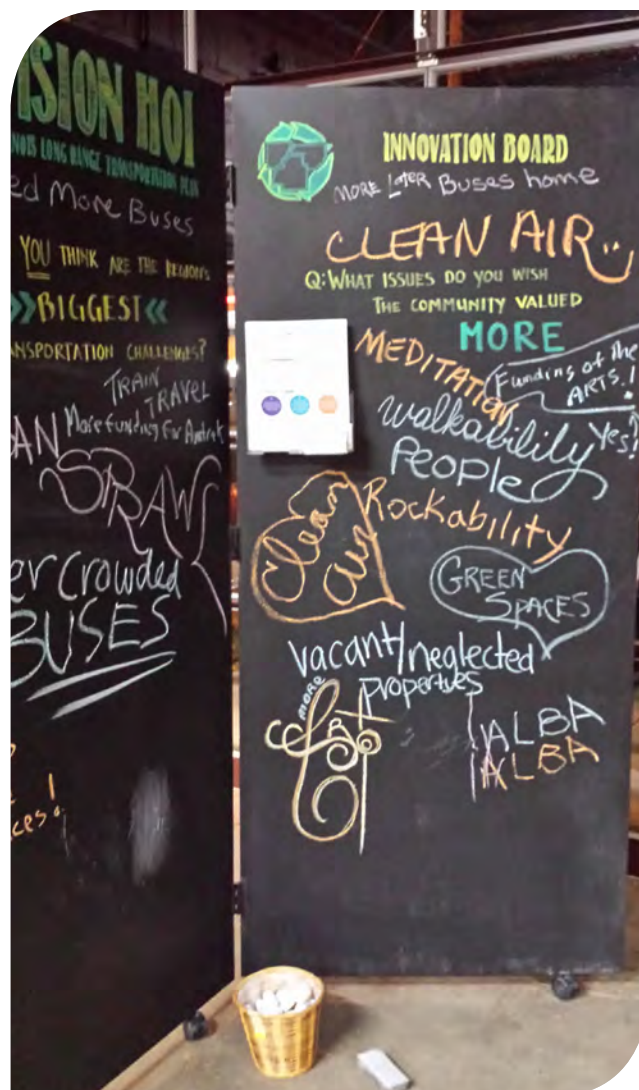 ISION HOI
NOIS LONG RANGE TRANSPORTATION PLAN
ed More Buses
YOU THINK ARE THE REGION'S
»BIGGEST«
NSPORTATION CHALLENGES?
TRAIN
TRAVEL
More funding for Amtrak
AN
SPRAWL
er crowded
BUSES
ces!
INNOVATION BOARD
MORE Later Buses home
CLEAN AIR
Q: WHAT ISSUES DO YOU WISH
THE COMMUNITY VALUED
MORE
MEDITATION
Funding of the
ARTS.!
walkability
Yes!
People
Rockability
Clean
air
GREEN
SPACES
vacant/neglected
properties
MORE
ALBA
ALBA